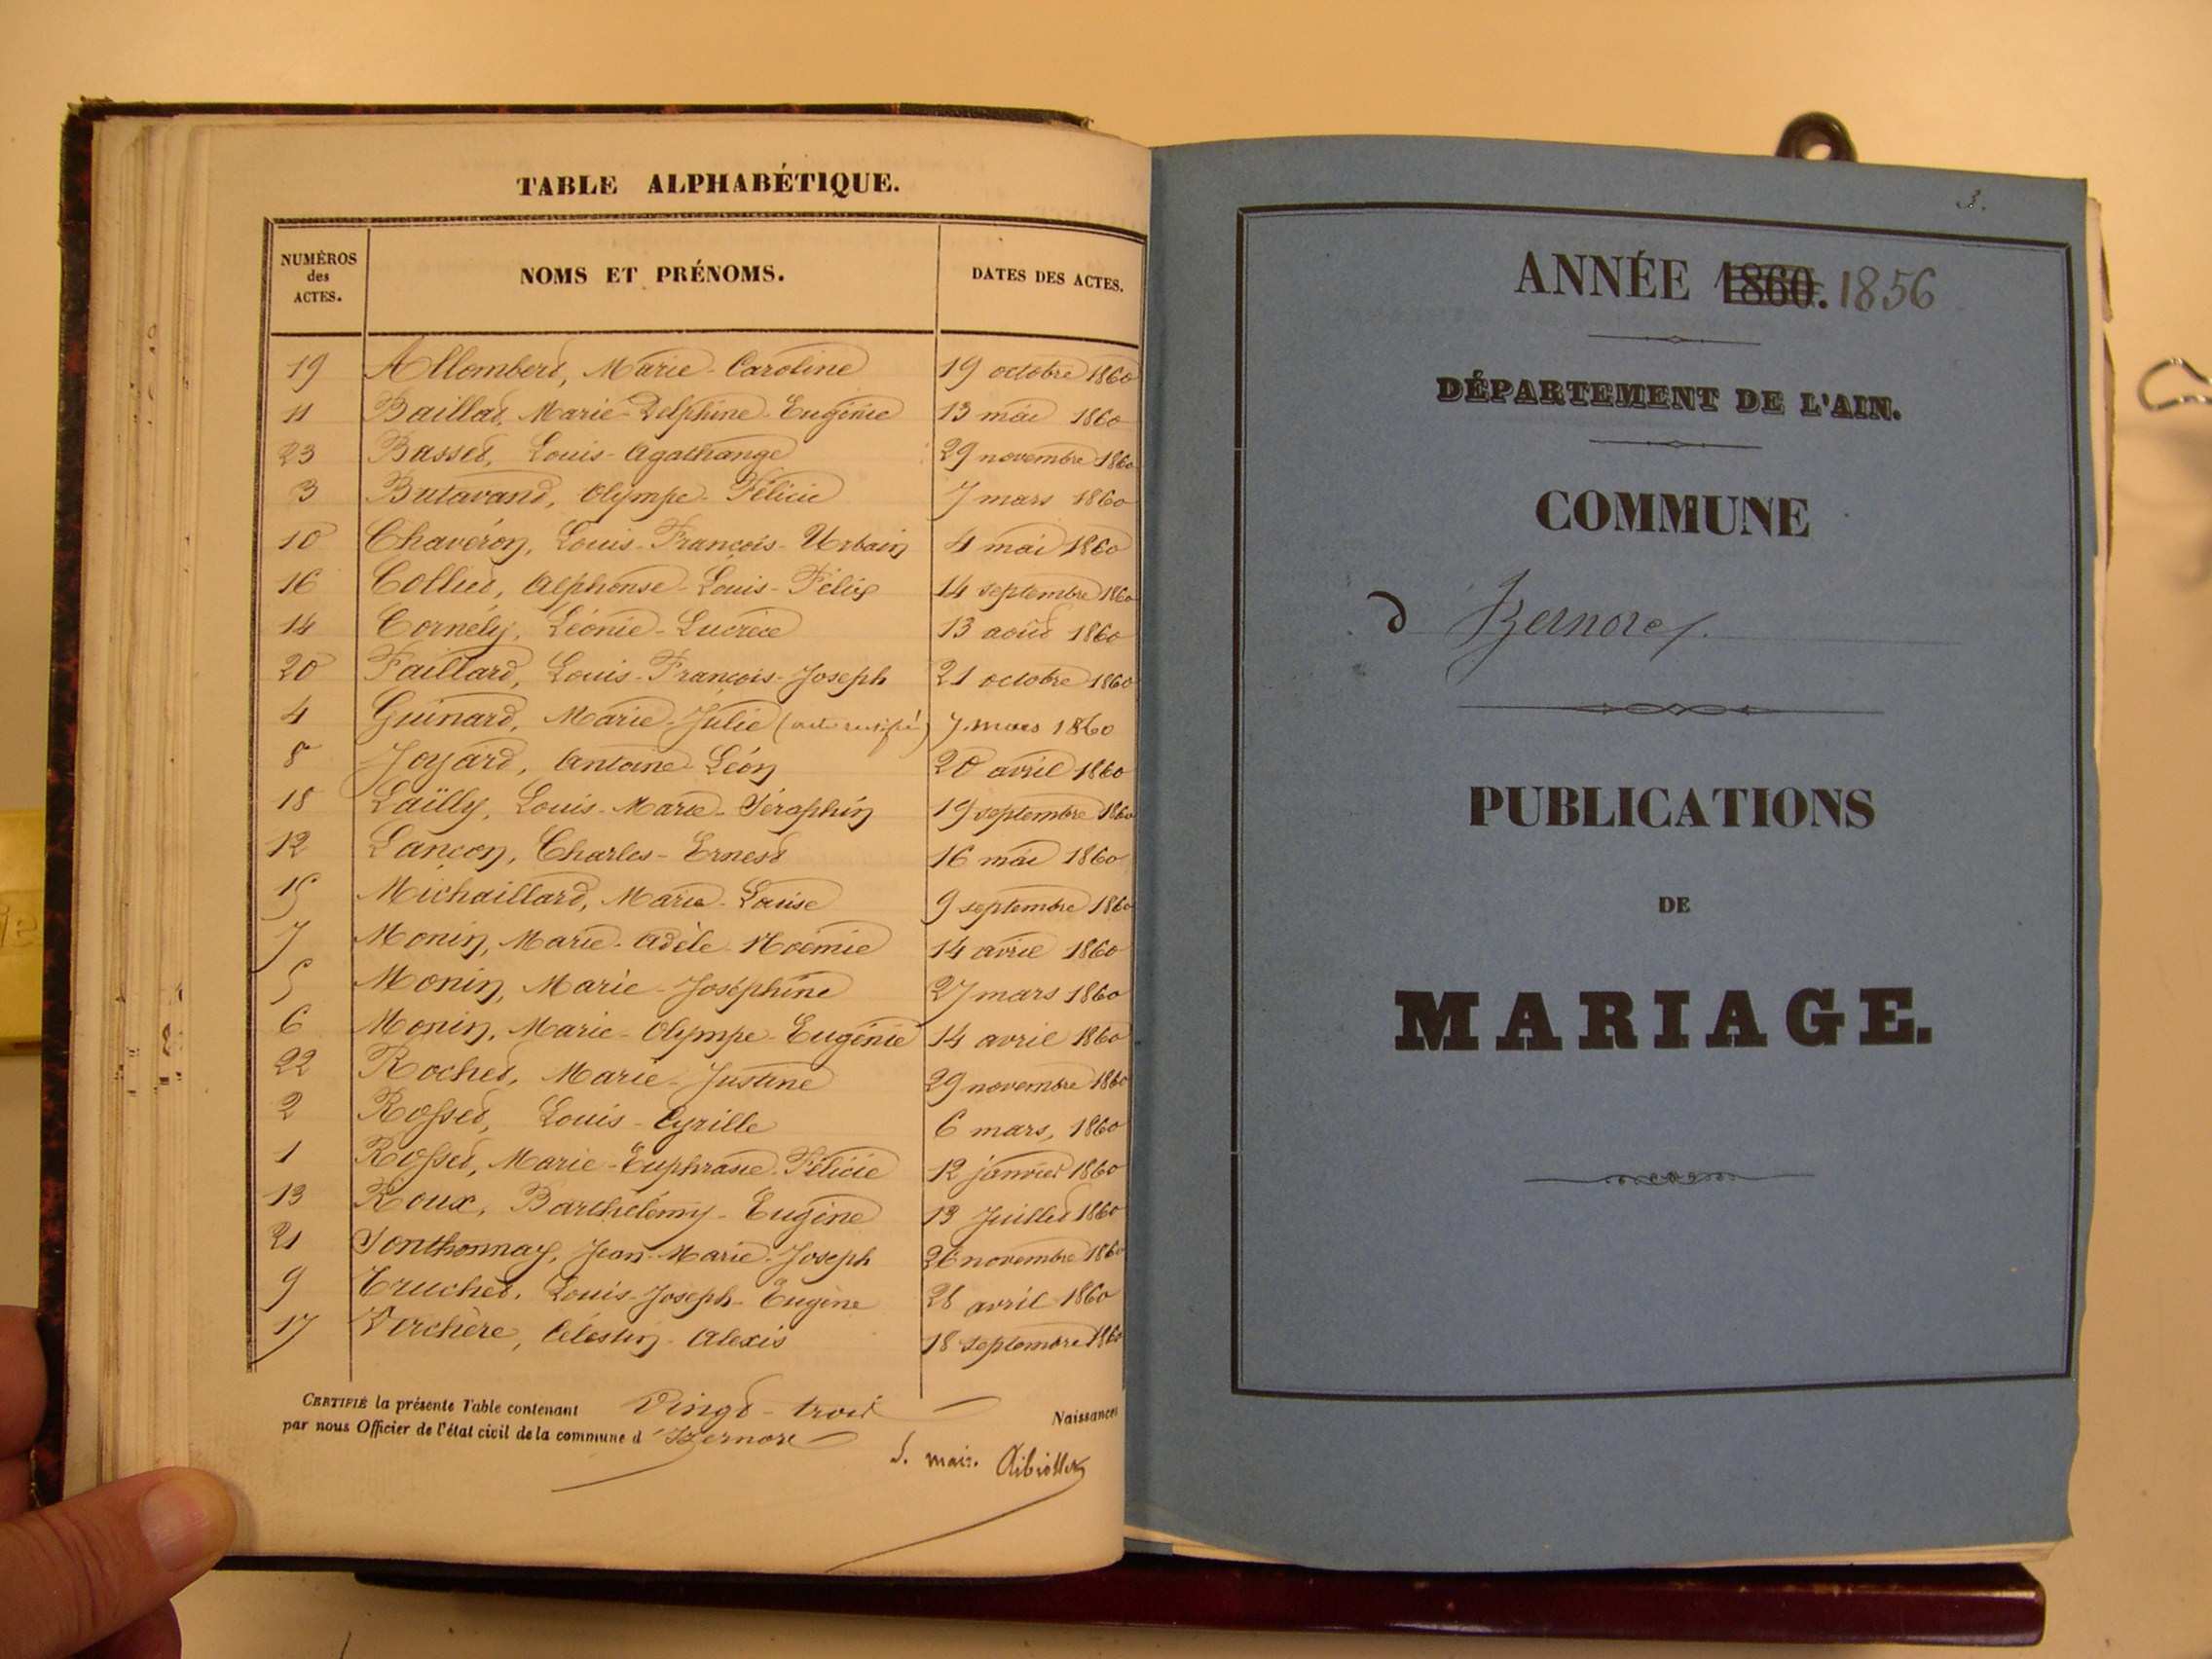 TABLE ALPHABÉTIQUE.
NUMÉROS des ACTES. NOMS ET PRÉNOMS. DATES DES ACTES.
19 Allombert, Marie-Caroline 19 octobre 1860
11 Baillat, Marie-Delphine-Eugénie 13 mai 1860
23 Basset, Louis-Agathange 29 novembre 1860
3 Butavand, Olympe-Félicie 7 mars 1860
10 Chavéron, Louis-François-Urbain 4 mai 1860
16 Collet, Alphonse-Louis-Félix 14 septembre 1860
14 Cornély, Léonie-Lucrèce 13 août 1860
20 Faillard, Louis-François-Joseph 21 octobre 1860
4 Guinard, Marie-Julie (acte rectifié) 7 mars 1860
8 Joyard, Antoine-Léon 20 avril 1860
18 Laïlly, Louis-Marie-Séraphin 19 septembre 1860
12 Lançon, Charles-Ernest 16 mai 1860
15 Michaillard, Marie-Louise 9 septembre 1860
7 Monin, Marie-Adèle-Noémie 14 avril 1860
5 Monin, Marie-Joséphine 27 mars 1860
6 Monin, Marie-Olympe-Eugénie 14 avril 1860
22 Rochet, Marie-Justine 29 novembre 1860
2 Rosset, Louis-Cyrille 6 mars, 1860
1 Rosset, Marie-Euphrasie-Félicie 12 janvier 1860
13 Roux, Barthélemy-Eugène 13 Juillet 1860
21 Sonthonnax, Jean-Marie-Joseph 26 novembre 1860
9 Truchet, Louis-Joseph-Eugène 28 avril 1860
17 Verchère, Célestin-Alexis 18 septembre 1860
CERTIFIÉ la présente Table contenant Vingt-trois Naissances
par nous Officier de l'état civil de la commune d'Izernore
L. mair.
3.
ANNÉE 1860. 1856
DÉPARTEMENT DE L'AIN.
COMMUNE
d Izernore.
PUBLICATIONS
DE
MARIAGE.